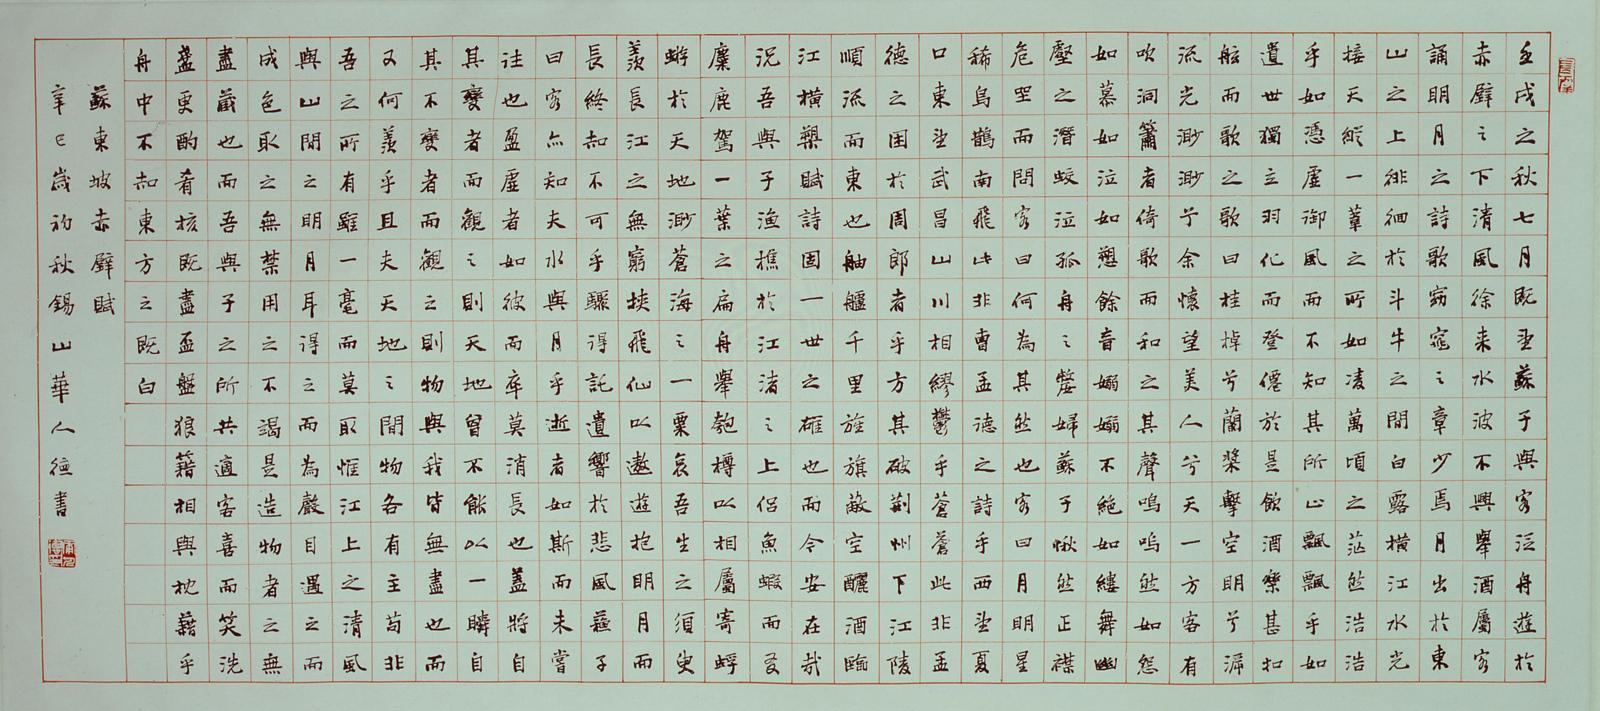 壬戌之秋七月既望蘇子與客泛舟遊於
赤壁之下清風徐來水波不興舉酒屬客
誦明月之詩歌窈窕之章少焉月出於東
山之上徘徊於斗牛之間白露橫江水光
接天縱一葦之所如凌萬頃之茫然浩浩
乎如憑虛御風而不知其所止飄飄乎如
遺世獨立羽化而登僊於是飲酒樂甚扣
舷而歌之歌曰桂棹兮蘭槳擊空明兮泝
流光渺渺兮余懷望美人兮天一方客有
吹洞簫者倚歌而和之其聲嗚嗚然如怨
如慕如泣如愬餘音嫋嫋不絕如縷舞幽
壑之潛蛟泣孤舟之嫠婦蘇子愀然正襟
危坐而問客曰何為其然也客曰月明星
稀烏鵲南飛此非曹孟德之詩乎西望夏
口東望武昌山川相繆鬱乎蒼蒼此非孟
德之困於周郎者乎方其破荊州下江陵
順流而東也舳艫千里旌旗蔽空釃酒臨
江橫槊賦詩固一世之雄也而今安在哉
況吾與子漁樵於江渚之上侶魚蝦而友
麋鹿駕一葉之扁舟舉匏樽以相屬寄蜉
蝣於天地渺蒼海之一粟哀吾生之須臾
羨長江之無窮挾飛仙以遨遊抱明月而
長終知不可乎驟得託遺響於悲風蘇子
曰客亦知夫水與月乎逝者如斯而未嘗
往也盈虛者如彼而卒莫消長也蓋將自
其變者而觀之則天地曾不能以一瞬自
其不變者而觀之則物與我皆無盡也而
又何羨乎且夫天地之間物各有主苟非
吾之所有雖一毫而莫取惟江上之清風
與山間之明月耳得之而為聲目遇之而
成色取之無禁用之不竭是造物者之無
盡藏也而吾與子之所共適客喜而笑洗
盞更酌肴核既盡盃盤狼籍相與枕藉乎
舟中不知東方之既白
蘇東坡赤壁賦
辛巳歲初秋錫山華人德書